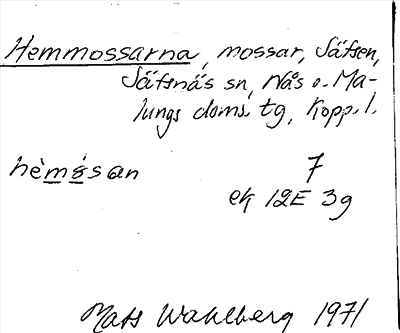 Hemmossarna, mossar, Säfsen,
Säfsnäs sn, Nås o. Ma-
lungs doms. tg, Kopp. l.
hèmǿsan 7
ek 12E 3g
Mats Wahlberg 1971